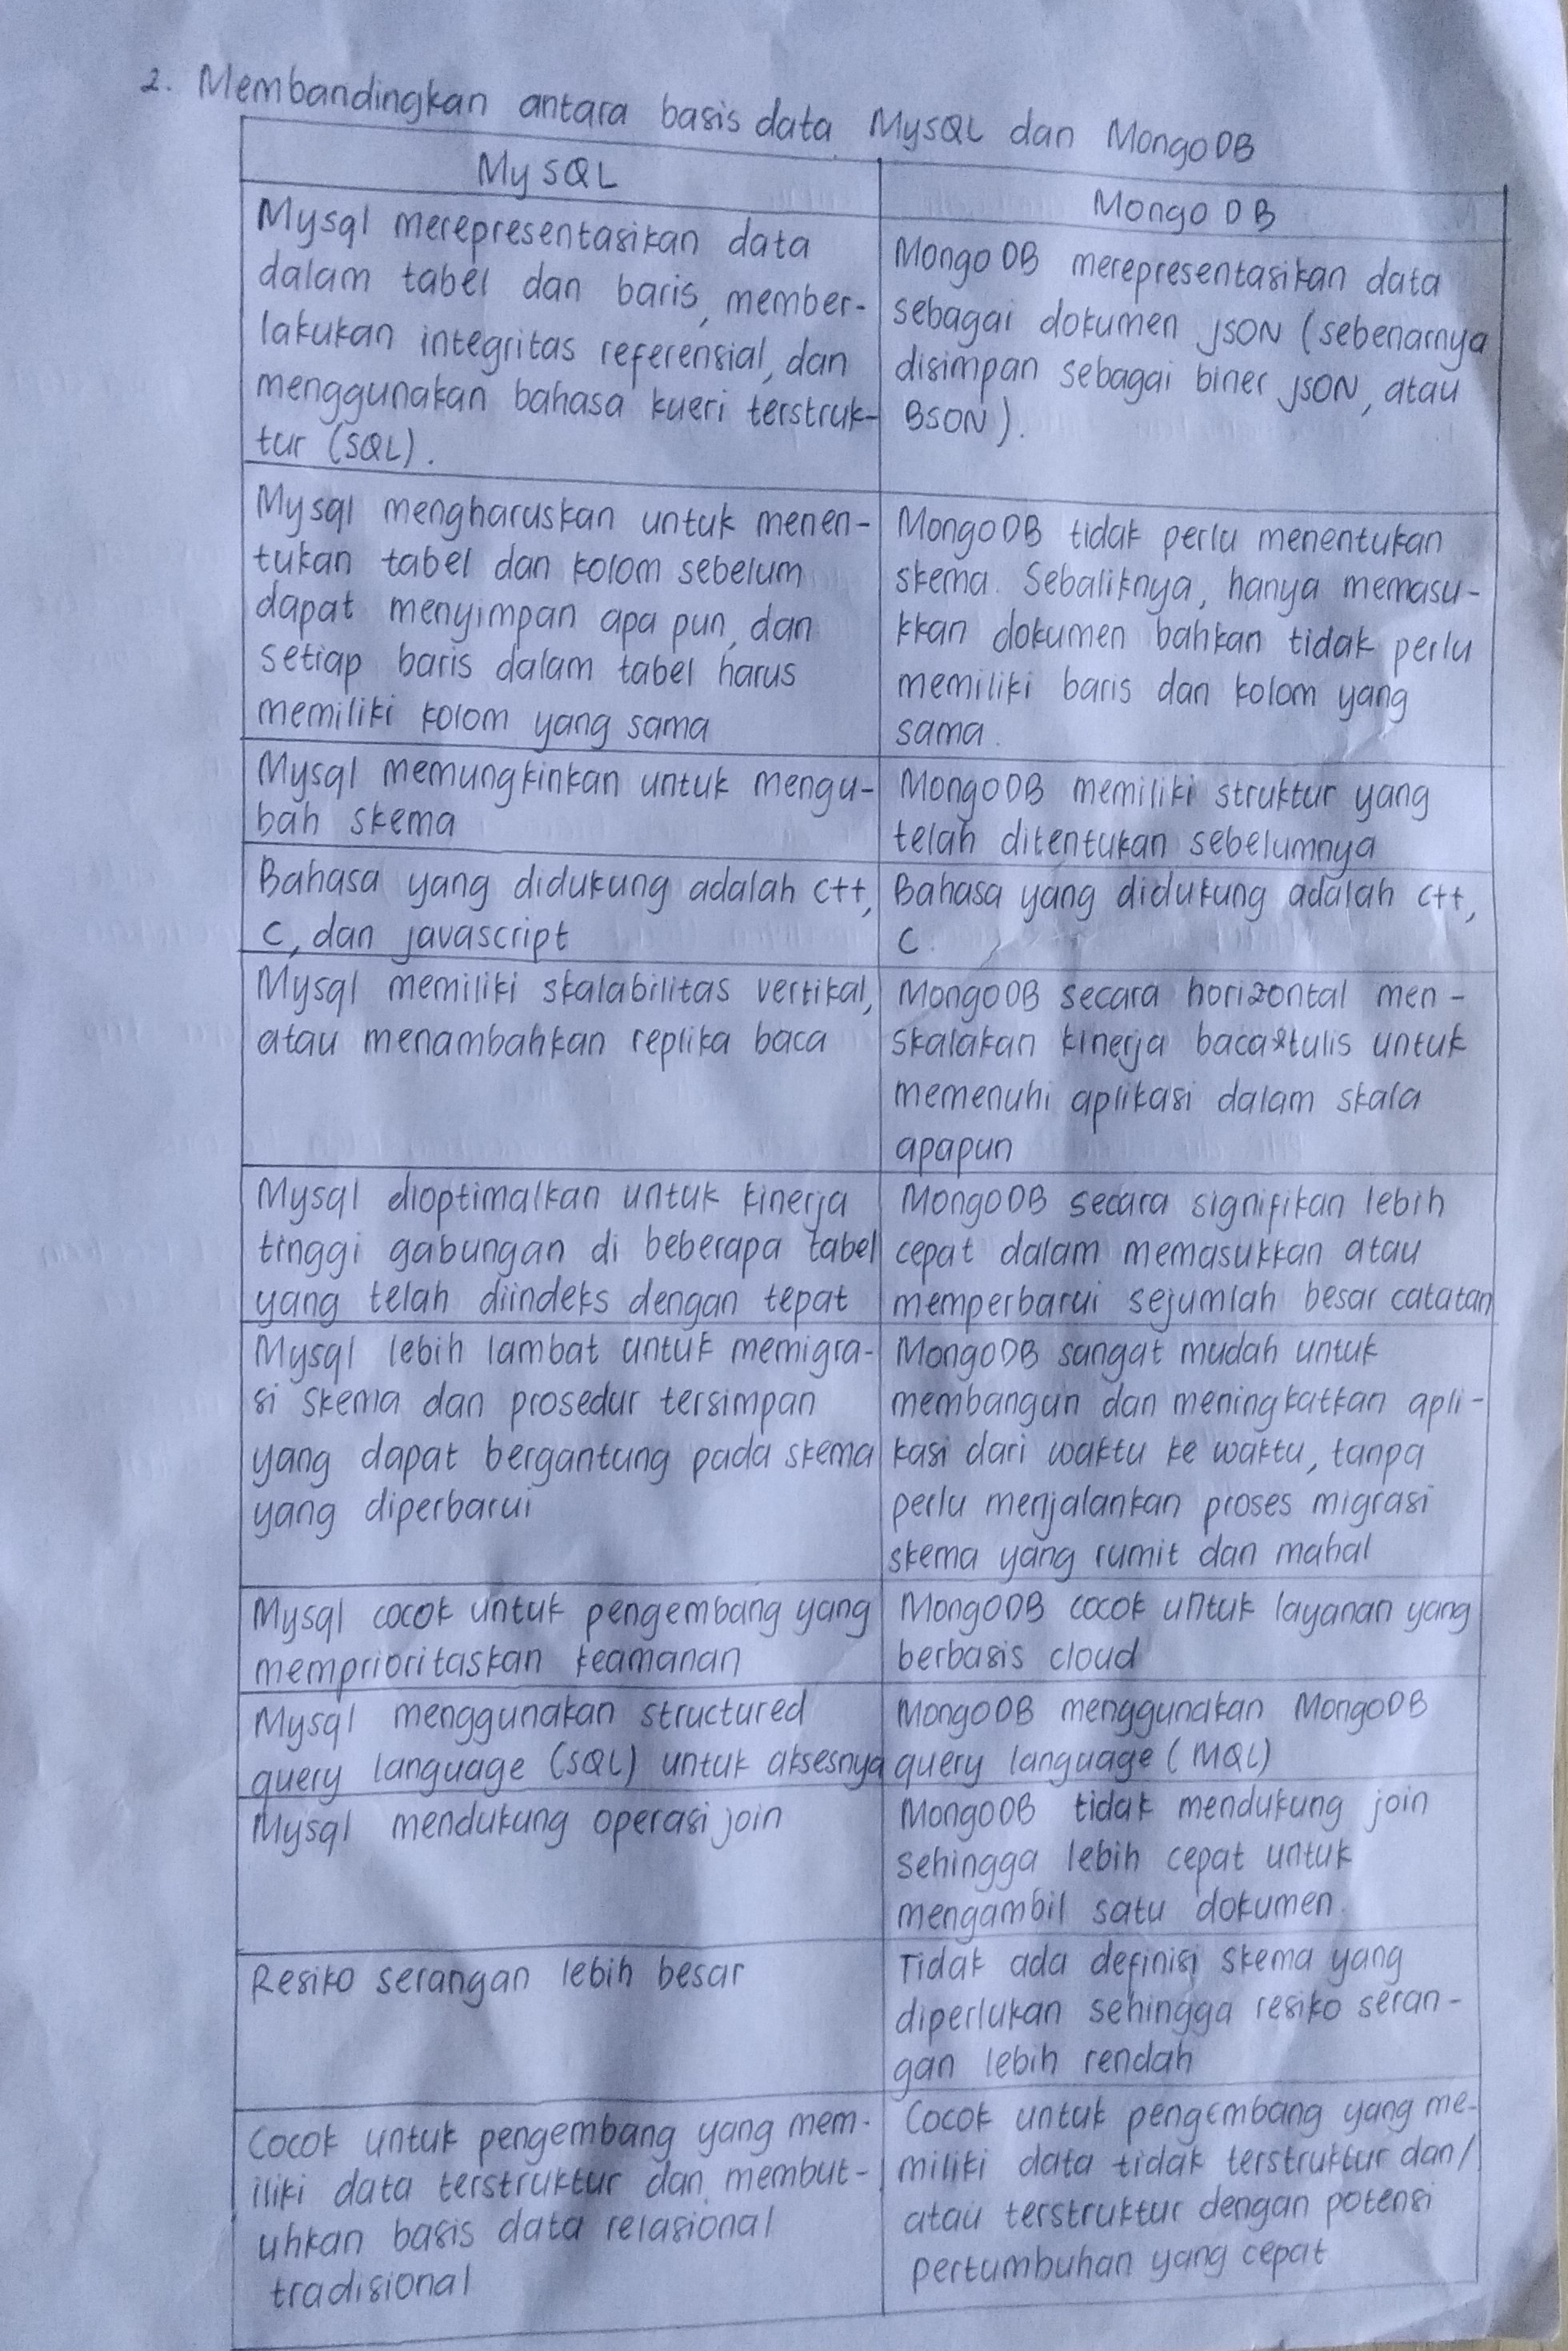 2. Membandingkan antara basis data MySQL dan MongoDB
MySQL
Mongo DB
Mysql merepresentasikan data
dalam tabel dan baris, member-
lakukan integritas referensial, dan
menggunakan bahasa kueri terstruk-
tur (SQL).
MongoDB merepresentasikan data
sebagai dokumen JSON (sebenarnya
disimpan sebagai biner JSON, atau
BSON).
Mysql mengharuskan untuk menen-
tukan tabel dan kolom sebelum
dapat menyimpan apa pun, dan
setiap baris dalam tabel harus
memiliki kolom yang sama
MongoDB tidak perlu menentukan
skema. Sebaliknya, hanya memasu-
kkan dokumen bahkan tidak perlu
memiliki baris dan kolom yang
sama.
Mysql memungkinkan untuk mengu-
bah skema
MongoDB memiliki struktur yang
telah ditentukan sebelumnya
Bahasa yang didukung adalah C++,
C, dan javascript
Bahasa yang didukung adalah C++,
C.
Mysql memiliki skalabilitas vertikal,
atau menambahkan replika baca
MongoDB secara horizontal men-
skalakan kinerja baca&tulis untuk
memenuhi aplikasi dalam skala
apapun
Mysql dioptimalkan untuk kinerja
tinggi gabungan di beberapa tabel
yang telah diindeks dengan tepat
MongoDB secara signifikan lebih
cepat dalam memasukkan atau
memperbarui sejumlah besar catatan
Mysql lebih lambat untuk memigra-
si skema dan prosedur tersimpan
yang dapat bergantung pada skema
yang diperbarui
MongoDB sangat mudah untuk
membangun dan meningkatkan apli-
kasi dari waktu ke waktu, tanpa
perlu menjalankan proses migrasi
skema yang rumit dan mahal
Mysql cocok untuk pengembang yang
memprioritaskan keamanan
MongoDB cocok untuk layanan yang
berbasis cloud
Mysql menggunakan structured
query language (SQL) untuk aksesnya
MongoDB menggunakan MongoDB
query language (MQL)
Mysql mendukung operasi join
MongoDB tidak mendukung join
sehingga lebih cepat untuk
mengambil satu dokumen.
Resiko serangan lebih besar
Tidak ada definisi skema yang
diperlukan sehingga resiko seran-
gan lebih rendah
Cocok untuk pengembang yang mem-
iliki data terstruktur dan membut-
uhkan basis data relasional
tradisional
Cocok untuk pengembang yang me-
miliki data tidak terstruktur dan/
atau terstruktur dengan potensi
pertumbuhan yang cepat